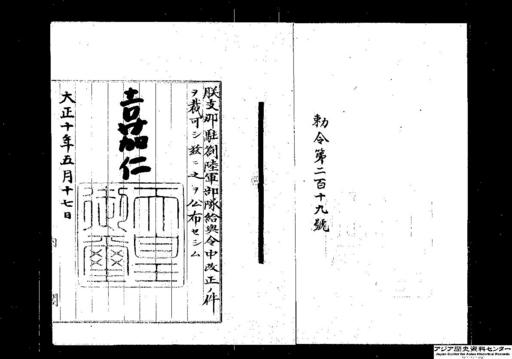 勅令第二百十九號
朕支那駐劄陸軍部隊給與令中改正ノ件
ヲ裁可シ玆ニ之ヲ公布セシム
嘉仁
天皇御璽
大正十年五月十七日
アジア歴史資料センター
Japan Center for Asian Historical Records